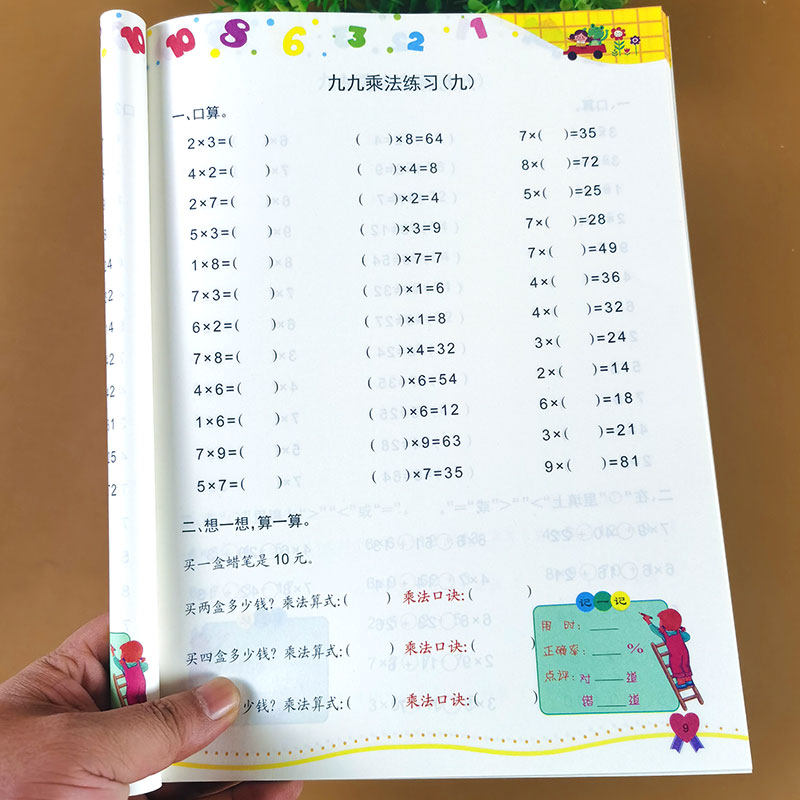 10 10 8 6 3 2 1
九九乘法练习(九)
一、口算。
2×3=(  )  (  )×8=64  7×(  )=35
4×2=(  )  (  )×4=8  8×(  )=72
2×7=(  )  (  )×2=4  5×(  )=25
5×3=(  )  (  )×3=9  7×(  )=28
1×8=(  )  (  )×7=7  7×(  )=49
7×3=(  )  (  )×1=6  4×(  )=36
6×2=(  )  (  )×1=8  4×(  )=32
7×8=(  )  (  )×4=32  3×(  )=24
4×6=(  )  (  )×6=54  2×(  )=14
1×6=(  )  (  )×6=12  6×(  )=18
7×9=(  )  (  )×9=63  3×(  )=21
5×7=(  )  (  )×7=35  9×(  )=81
二、想一想,算一算。
买一盒蜡笔是10元。
买两盒多少钱? 乘法算式:(  ) 乘法口诀:(  )
买四盒多少钱? 乘法算式:(  ) 乘法口诀:(  )
少钱? 乘法算式:(  ) 乘法口诀:(  )
记一记
用 时:____
正确率:____%
点评: 对____道
错____道
9